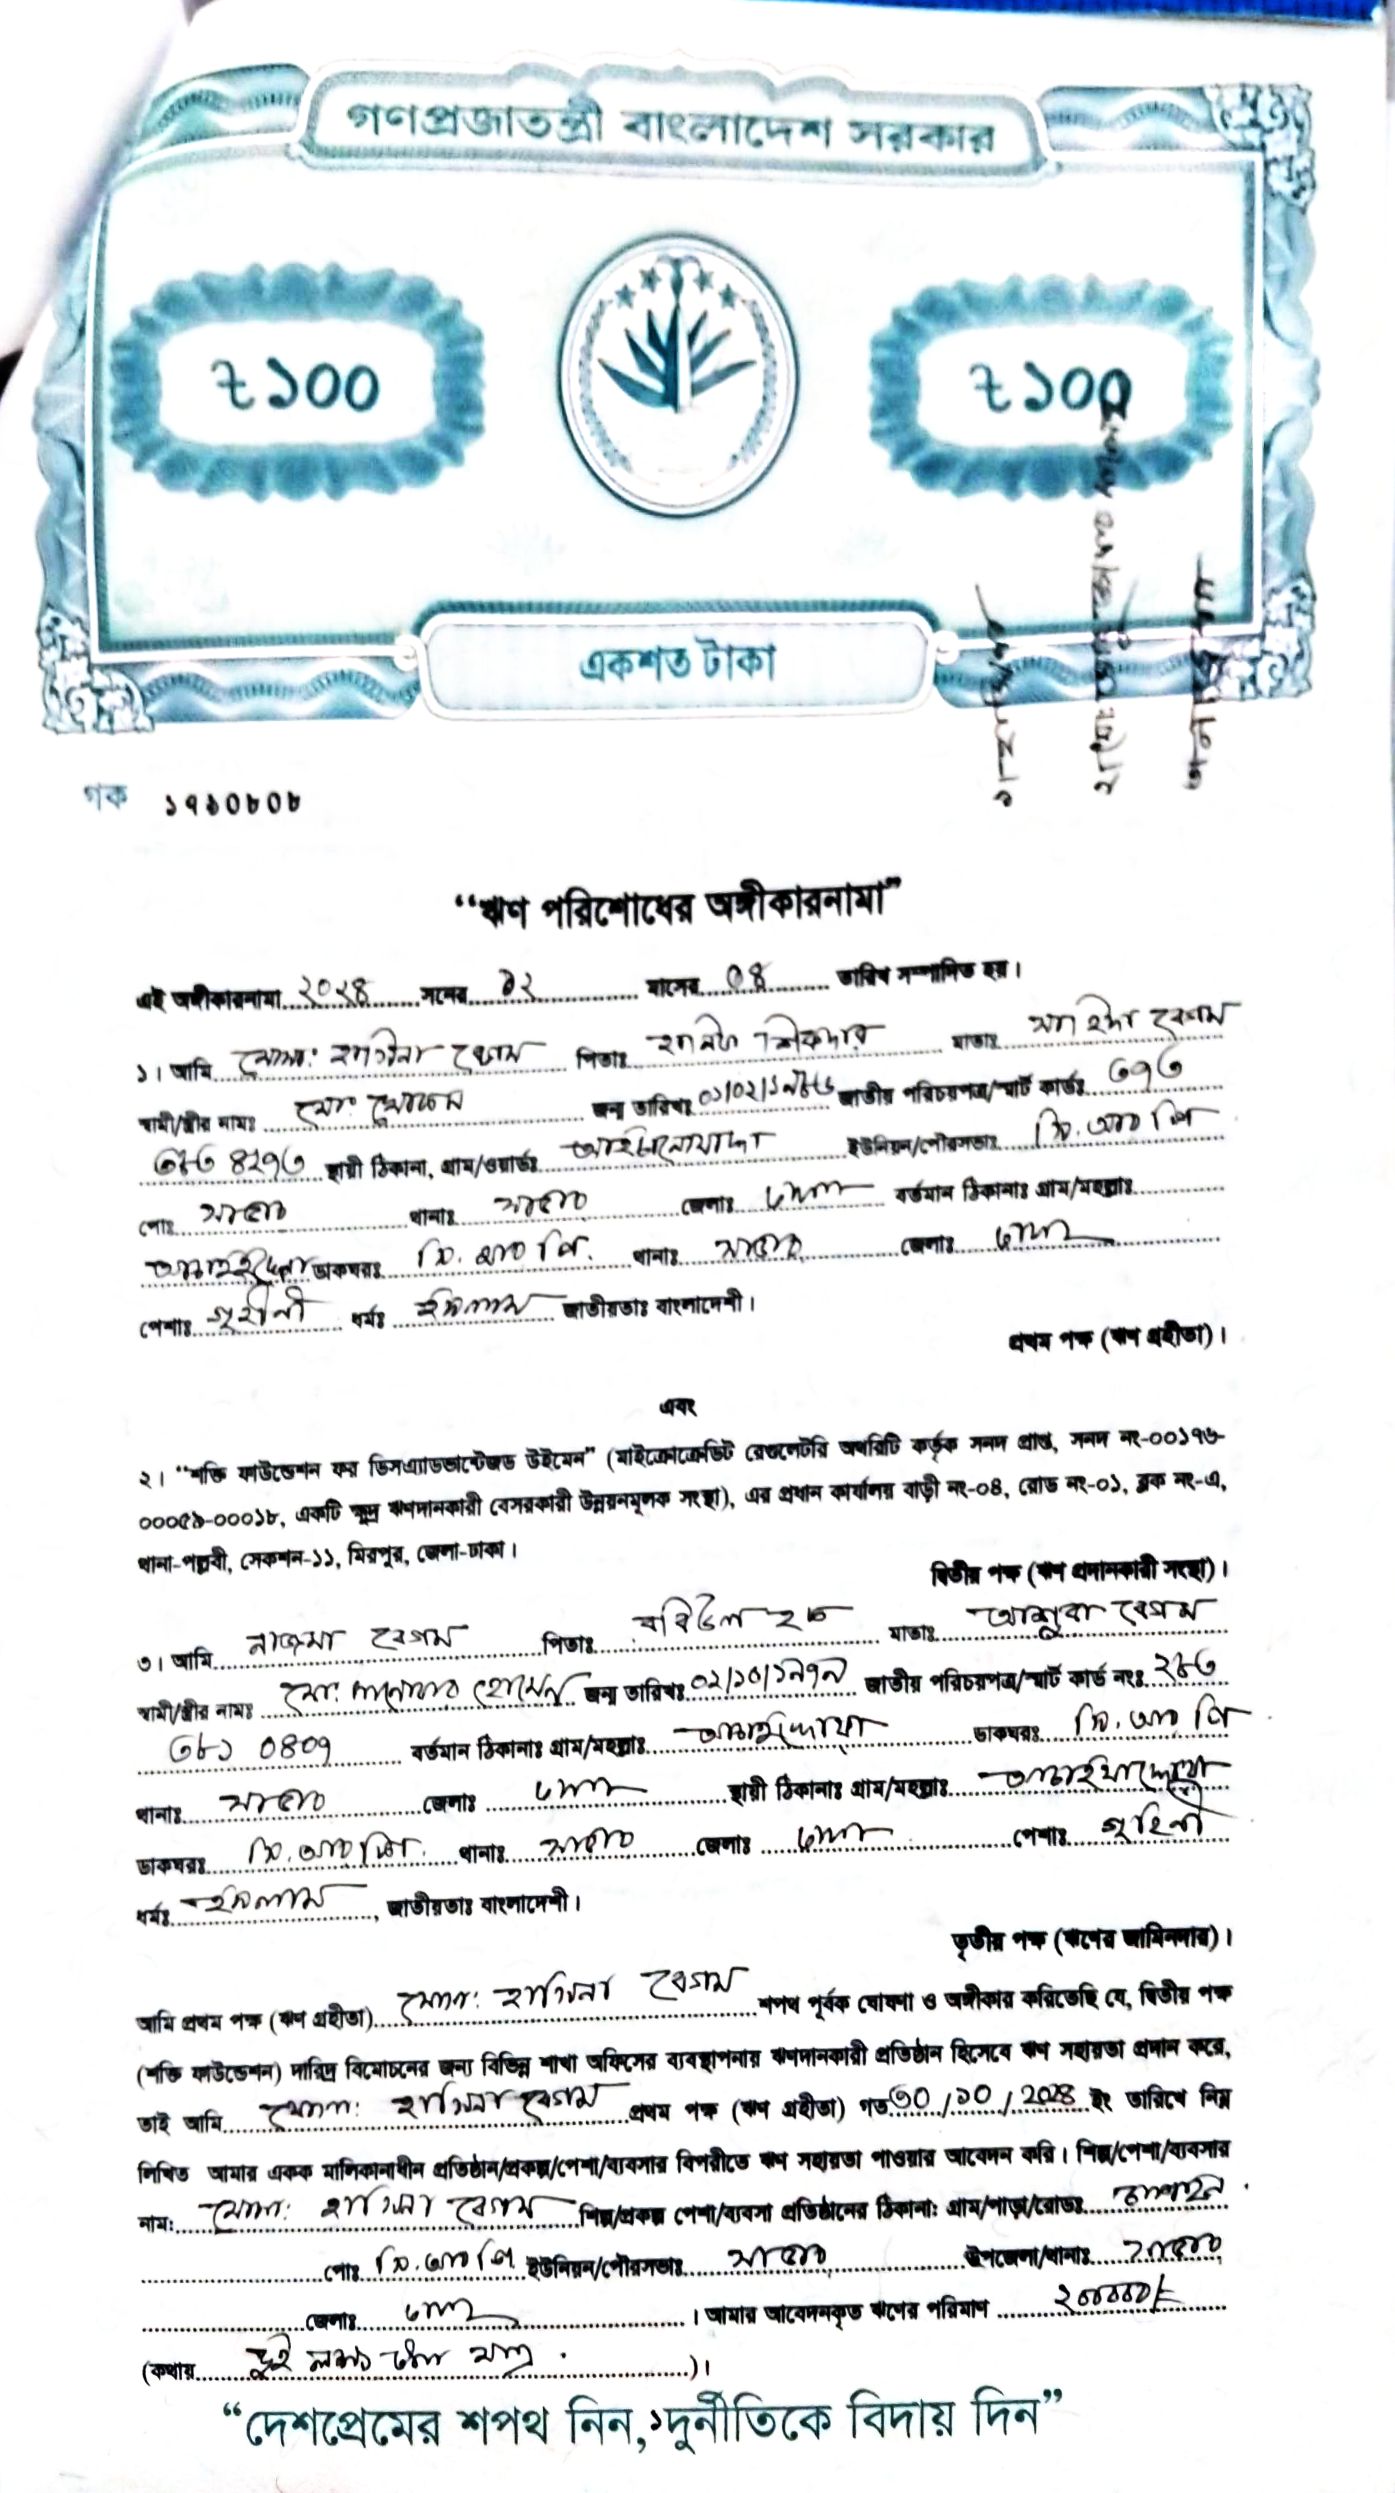 গণপ্রজাতন্ত্রী বাংলাদেশ সরকার
৳১০০
৳১০০
একশত টাকা
গক ১৭১০৮০৮
“ঋণ পরিশোধের অঙ্গীকারনামা”
এই অঙ্গীকারনামা ২০২৪ সনের ১২ মাসের ০৪ তারিখ সম্পাদিত হয়।
১। আমি মোসা: হাসিনা বেগম পিতাঃ শিকদার মাতাঃ বেগম
স্বামী/স্ত্রীর নামঃ মো: জন্ম তারিখঃ ০১/০২/১৯৮৬ জাতীয় পরিচয়পত্র/স্মার্ট কার্ডঃ ৩৭৩
৩৮৩ ৪২৭৩ স্থায়ী ঠিকানা, গ্রাম/ওয়ার্ডঃ ইউনিয়ন/পৌরসভাঃ পি.আর পি
পোঃ সাভার থানাঃ সাভার জেলাঃ ঢাকা বর্তমান ঠিকানাঃ গ্রাম/মহল্লাঃ
ডাকঘরঃ পি. আর পি. থানাঃ সাভার জেলাঃ ঢাকা
পেশাঃ গৃহীনী ধর্মঃ ইসলাম জাতীয়তাঃ বাংলাদেশী।
প্রথম পক্ষ (ঋণ গ্রহীতা)।
এবং
২। “শক্তি ফাউন্ডেশন ফর ডিসএ্যাডভান্টেজড উইমেন” (মাইক্রোক্রেডিট রেগুলেটরি অথরিটি কর্তৃক সনদ প্রাপ্ত, সনদ নং-০০১৭৬-
০০০৫৯-০০০১৮, একটি ক্ষুদ্র ঋণদানকারী বেসরকারী উন্নয়নমূলক সংস্থা), এর প্রধান কার্যালয় বাড়ী নং-০৪, রোড নং-০১, ব্লক নং-এ,
থানা-পল্লবী, সেকশন-১১, মিরপুর, জেলা-ঢাকা।
দ্বিতীয় পক্ষ (ঋণ প্রদানকারী সংস্থা)।
৩। আমি নাজমা বেগম পিতাঃ রবিউল হক মাতাঃ বেগম
স্বামী/স্ত্রীর নামঃ মো: হোসেন জন্ম তারিখঃ ০২/১০/১৯৭৯ জাতীয় পরিচয়পত্র/স্মার্ট কার্ড নংঃ ২৮৩
৩৮১ ০৪০৭ বর্তমান ঠিকানাঃ গ্রাম/মহল্লাঃ ডাকঘরঃ পি.আর পি
থানাঃ সাভার জেলাঃ ঢাকা স্থায়ী ঠিকানাঃ গ্রাম/মহল্লাঃ
ডাকঘরঃ পি.আর পি. থানাঃ সাভার জেলাঃ ঢাকা পেশাঃ গৃহিনী
ধর্মঃ ইসলাম, জাতীয়তাঃ বাংলাদেশী।
তৃতীয় পক্ষ (ঋণের জামিনদার)।
আমি প্রথম পক্ষ (ঋণ গ্রহীতা) মোসা: হাসিনা বেগম শপথ পূর্বক ঘোষণা ও অঙ্গীকার করিতেছি যে, দ্বিতীয় পক্ষ
(শক্তি ফাউন্ডেশন) দারিদ্র বিমোচনের জন্য বিভিন্ন শাখা অফিসের ব্যবস্থাপনায় ঋণদানকারী প্রতিষ্ঠান হিসেবে ঋণ সহায়তা প্রদান করে,
তাই আমি মোসা: হাসিনা বেগম প্রথম পক্ষ (ঋণ গ্রহীতা) গত ৩০/১০/২০২৪ ইং তারিখে নিম্ন
লিখিত আমার একক মালিকানাধীন প্রতিষ্ঠান/প্রকল্প/পেশা/ব্যবসার বিপরীতে ঋণ সহায়তা পাওয়ার আবেদন করি। শিল্প/পেশা/ব্যবসার
নাম: মোসা: হাসিনা বেগম শিল্প/প্রকল্প পেশা/ব্যবসা প্রতিষ্ঠানের ঠিকানা: গ্রাম/পাড়া/রোডঃ
পোঃ পি.আর পি ইউনিয়ন/পৌরসভাঃ সাভার উপজেলা/থানাঃ সাভার
জেলাঃ ঢাকা । আমার আবেদনকৃত ঋণের পরিমাণ ২০০০০০/=
(কথায় দুই লক্ষ টাকা মাত্র . )।
“দেশপ্রেমের শপথ নিন, দুর্নীতিকে বিদায় দিন”
১